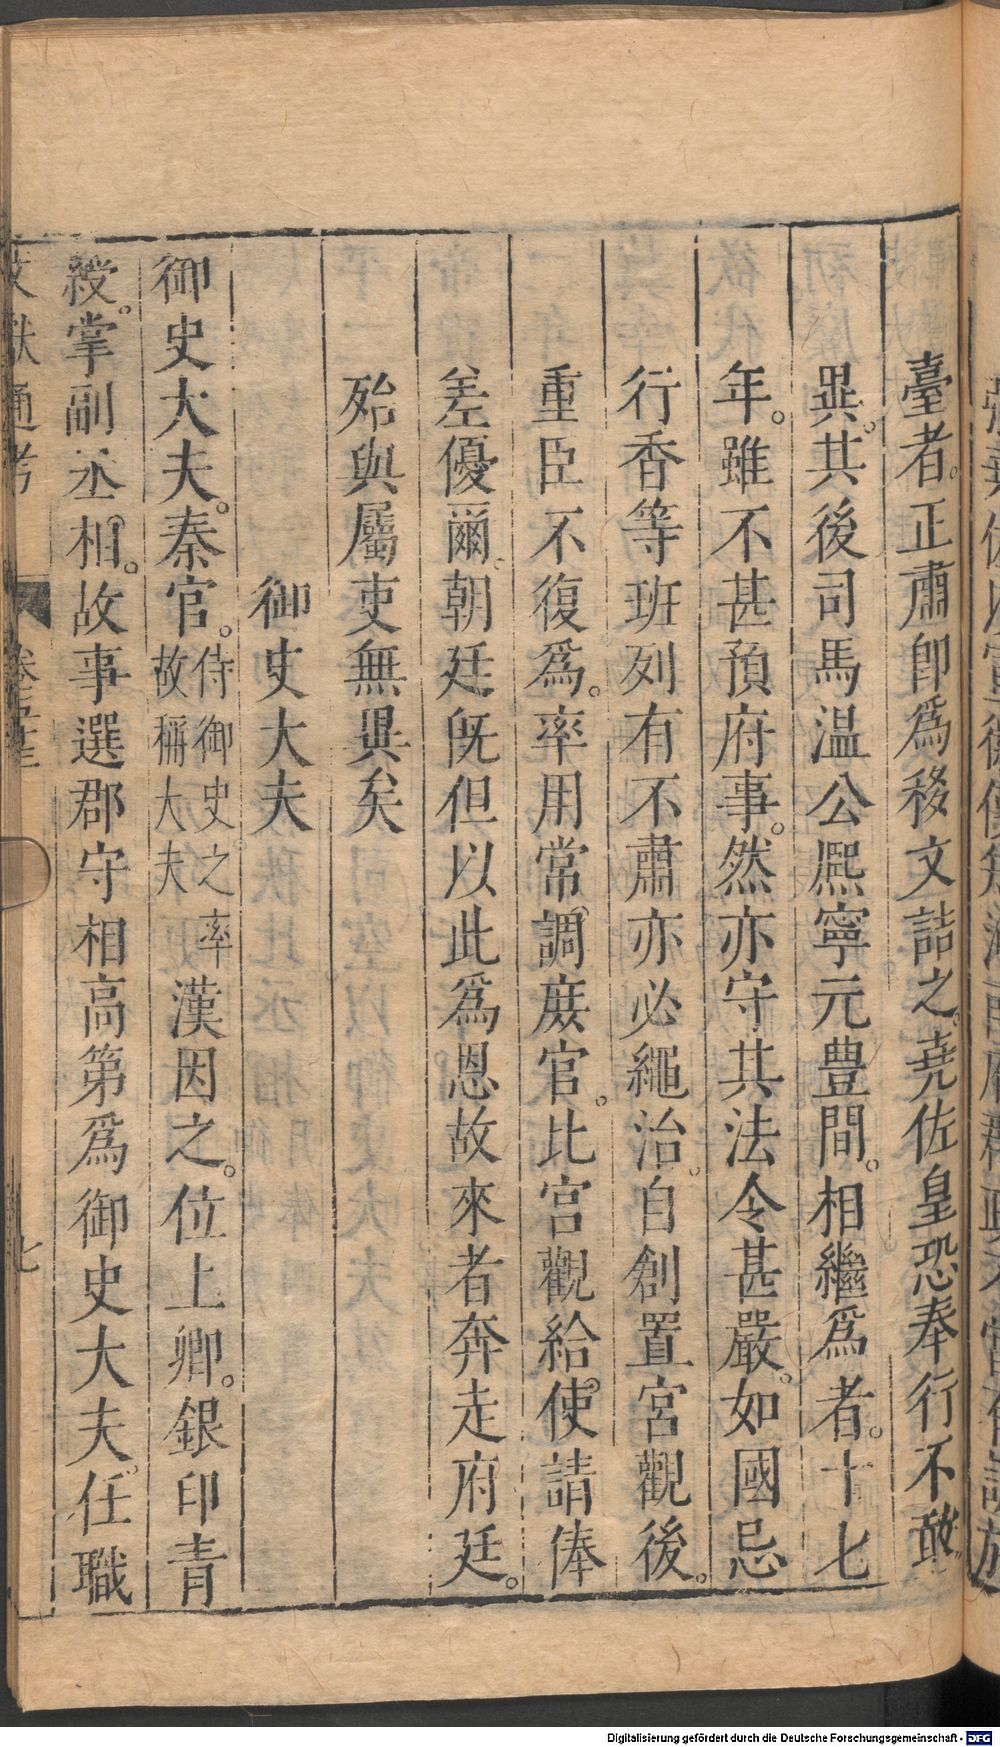 臺者。正肅即爲移文詰之。堯佐皇恐奉行不敢
異。其後司馬溫公熈寧元豊間。相繼爲者。十七
年。雖不甚預府事。然亦守其法令甚嚴。如國忌
行香等班列有不肅亦必繩治。自創置宮觀後。
重臣不復爲。率用常調庻官。比宮觀給使請俸
差優爾。朝廷旣但以此爲恩故來者奔走府廷。
殆與屬吏無異矣
御史大夫
御史大夫。秦官。侍御史之率故稱大夫漢因之。位上卿。銀印青
綬。掌副丞相。故事選郡守相高第爲御史大夫。任職
文獻通考 卷五十三 七
Digitalisierung gefördert durch die Deutsche Forschungsgemeinschaft - DFG